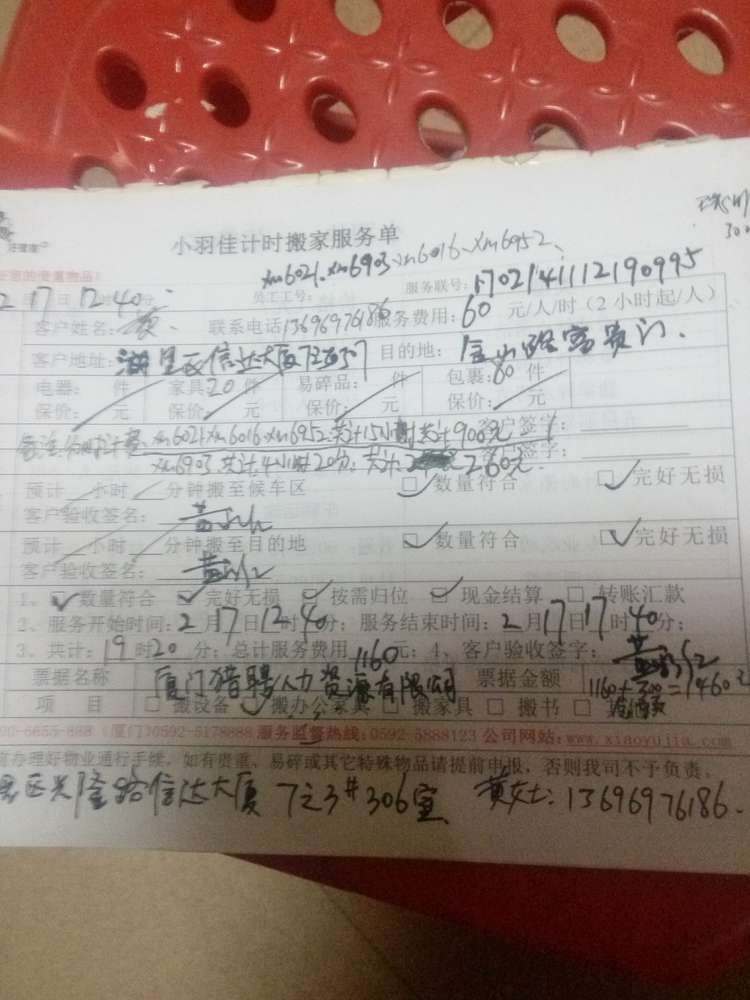 小羽佳计时搬家服务单
xm6021、xm6903、xm6016、xm6952、
30
2 17 12 40 分 员工工号: 服务联号: 1702141112190995
客户姓名: 黄 联系电话13696976186服务费用: 60 元/人/时（2小时起/人）
客户地址: 湖里区信达大厦 目的地:
电器: 件 家具20件 易碎品: 件 包裹:60件
保价: 元 保价: 元 保价: 元 保价: 元
备注:分时计费:xm6021、xm6016、xm6952共计15小时共计900元 客户签字:
xm6903共计4小时20分:共计: 260元 客户签字:
预计 小时 分钟搬至候车区 □数量符合 □完好无损
客户验收签名:
预计 小时 分钟搬至目的地 □数量符合 □完好无损
客户验收签名:
1、□数量符合 □完好无损 □按需归位 □现金结算 □转账汇款
2、服务开始时间:2月17日12时40分; 服务结束时间:2月17日17时40分;
3、共计:19时20分; 总计服务费用1160元; 4、客户验收签字:
票据名称 厦门猎聘人力资源有限公司 票据金额 1160+300=1460元
项 目 □搬设备 □搬办公家具 □搬家具 □搬书 □
00-6655-888（厦门）0592-5178888 服务监督热线:0592-5888123 公司网站:www.xiaoyujia.com
前办理好物业通行手续，如有贵重、易碎或其它特殊物品请提前申报，否则我司不予负责。
区兴隆路信达大厦 7之3#306室 黄女士: 13696976186